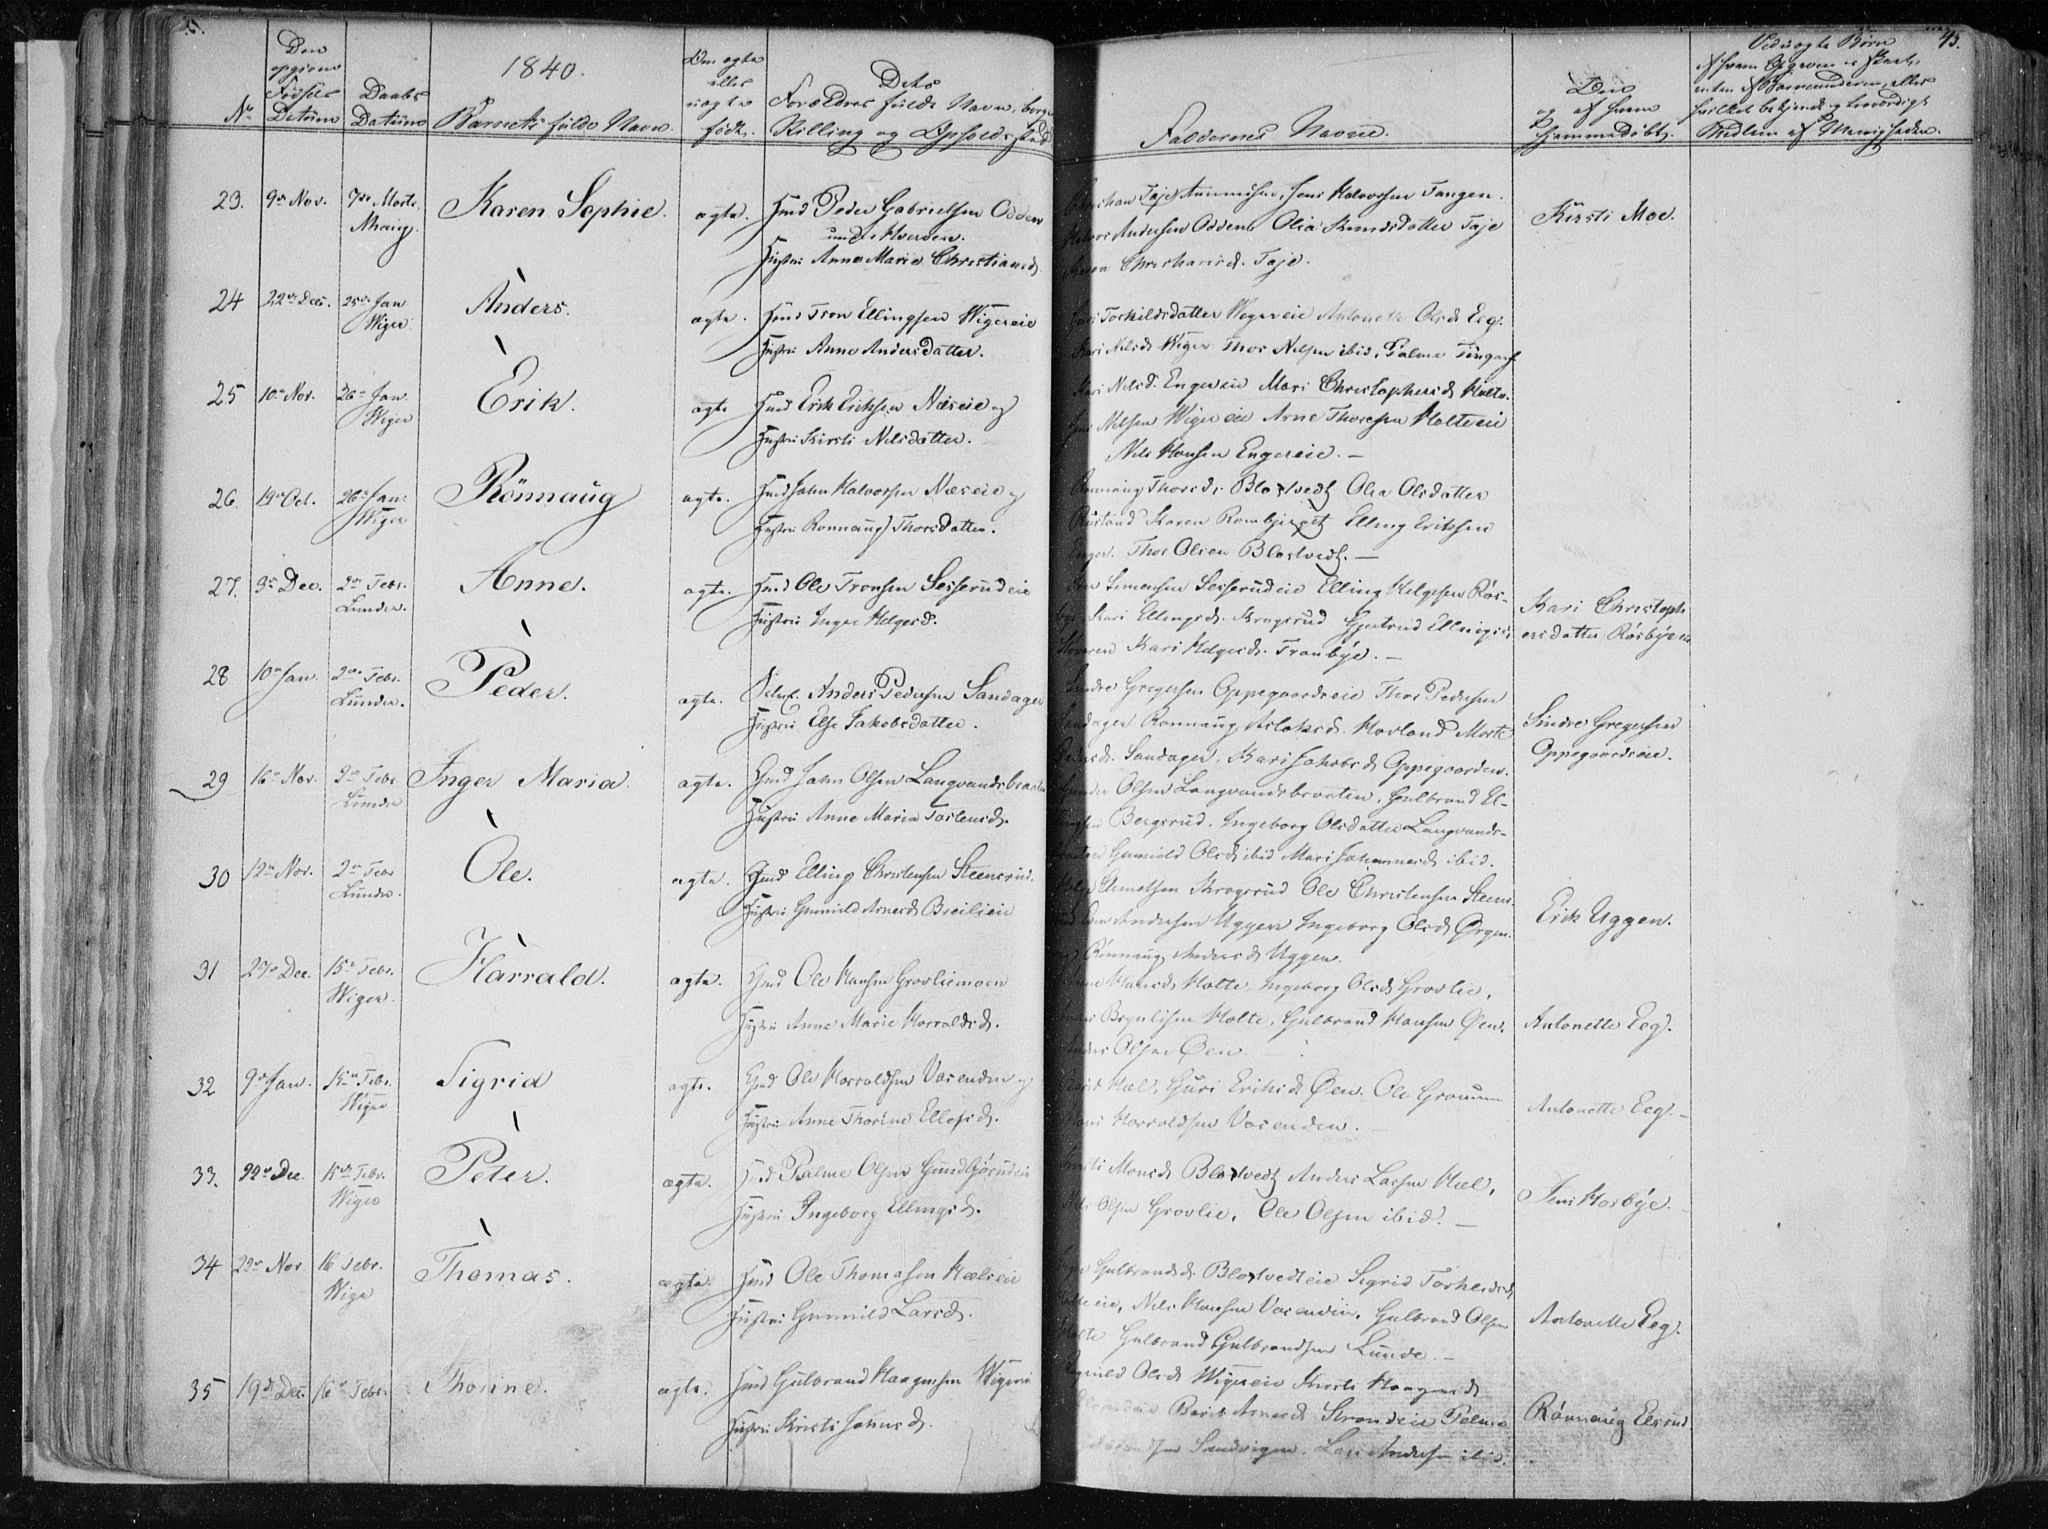 45.
No
Den opgivne Fødsels Datum
Daabs Datum
1840.
Barnets fulde Navn.
Om ægte eller uægte født.
Dets Forældres fulde Navn, borge. Stilling og Opholdssted
Faddernes Navne.
Om og af hvem hjemmedøbt.
Ved uægte Børn
af hvem Opgaven er skeet,
enten af Barnemoderen, eller
hvilket bekjendt og troværdigt
Medlem af Menigheden.
23. 9de Nov. 7de Marts Karen Sophie. ægte. Huusmd Peder Gabrielsen Odden
Hustru Anne Marie Christiansd.
Taje Jens Halvorsen Tangen.
Andersen Odden, Olia Knudsdatter Taje
Christiansd. Taje.
Kirsti Moe.
24 22de Dec. 25de Jan Wiger Anders. ægte. Huusmd Tron Ellingsen Wigereie
Hustru Anne Andersdatter.
Torkildsdatter Wigereie Antonette Olsd Eeg.
Kari Nilsd Wiger Thor Nilsen ibid, Palme
25 10de Nov. 26de Jan Wiger Erik. ægte Huusmd Erik Eriksen Næseie og
Hustru Kirsti Nilsdatter.
Kari Nilsd. Engereie Mari Christophersd Holte.
Nilsen Wigereie Arne Thoresen Holteeie
Nils Hansen Engereie. —
26. 19de Oct. 26de Jan: Wiger Rönnaug ægte. Huusmd John Halvorsen Næseie og
Hustru Ronnaug Thorsdatter.
Ronnaug Thorsd. Blostvedt Olia Olsdatter
Rustand Karen Elling Eriksen
Enger. Thor Olsen Blostvedt. —
27. 3de Dec. 2den Febr. Lunder. Anne. ægte. Huusmd Ole Tronsen Sesserudeie
Hustru Inger Helgesd.
Simensen Sesserudeie Elling Helgesen Rös-
bye, Kari Ellingsd. Kragsrud Gjertrud Ellingsd.
Kari Helgesd. Tranbÿe. —
Kari Christoph
ersdatter Rösbÿeeie
28 10de Jan. 2den Febr. Lunder. Peder. ægte. Anders Pedersen Sandager
Hustru Else Jakobsdatter.
Sindre Gregersen Oppegaardseie Thor Pedersen
Sandager Ronnaug Aslaksd. Hovland Marte
Pedersd. Sandager, Kari Jakobsd Oppegaarden.
Sindre Gregersen
Oppegaardseie.
29 16de Nov. 2den Febr Lunder Inger Maria. ægte. Gmd John Olsen Langvandsbraaten
Hustru Anne Maria Torstensd.
Olsen Langvandsbraaten, Gulbrand El-
lingsen Bergsrud, Ingeborg Olsdatter Langvands-
braaten Gunnild Olsd ibid Mari Johannesd ibid.
30 12de Nov. 2den Febr Lunder. Ole. ægte. Gmd Elling Christensen Steensrud.
Hustru Gunnild Arnesd Breilien
Clemetsen Kragsrud Ole Christensen Steens-
rud Andersen Uggen Ingeborg Olsd Örgen.
Rönnaug Andersd Uggen.
Erik Uggen.
31 27de Dec. 15de Febr. Wiger. Harrald. ægte. Gmd Ole Hansen Grovliemoen
Hustru Anne Marie Harraldsd.
Hansd. Holte, Ingeborg Olsd Grovlie,
Holte, Gulbrand Hansen Öen,
Anders Olsen Öen. —
Antonette Eeg.
32 9de Jan. 15de Febr. Wiger Sigrid ægte. Gmd Ole Harraldsen Vasenden og
Hustru Anne Thorine Ellefsd.
Marit Hæl, Guri Eriksd Öen. Ole
Harraldsen Vasenden. —
Antonette Eeg. —
33. 22de Dec. 15de Febr. Wiger Peter. ægte. Palme Olsen
Hustru Ingeborg Ellingsd.
Kirsti Monsd Blostvedt Anders Larsen Hæl,
Nils Olsen Grovlie, Ole Olsen ibid. —
Jens Hosbÿe.
34 22de Nov. 16 Febr. Wiger Thomas. ægte. Huusmd Ole Thomasen Hælseie
Hustru Gunnild Larsd.
Gulbrandsd. Blostvedteie Sigrid Torkildsd
Holteeie, Nils Hansen Vasenden, Gulbrand Olsen
Holte Gulbrand Gulbrandsen Lunde. —
Antonette Eeg.
35 19de Dec. 16de Febr. Thorine. ægte. Huusmd Gulbrand Haagensen Wigereie
Hustru Kirsti Johnsd.
Olsd Wigereie Kirsti Haagensd
Berit Arnesd Strandeie Palme
Sandvigen. Lars Andersen ibid.
Rönnaug Elsrud